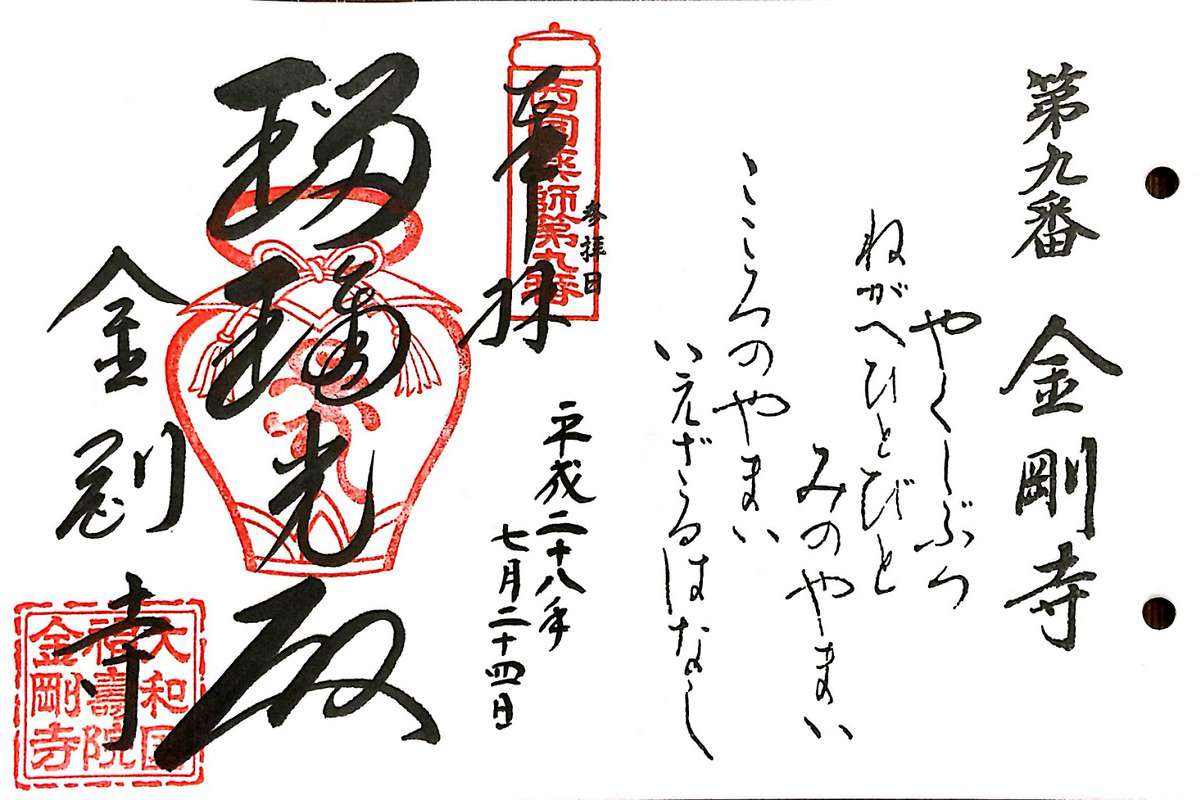 第九番 金剛寺
やくしぶつ
ねがへひとびと
みのやまい
こころのやまい
いえざるはなし
西国薬師第九番
参拝日
奉拝
平成二十八年
七月二十四日
瑠璃光殿
金剛寺
大和国
福壽院
金剛寺